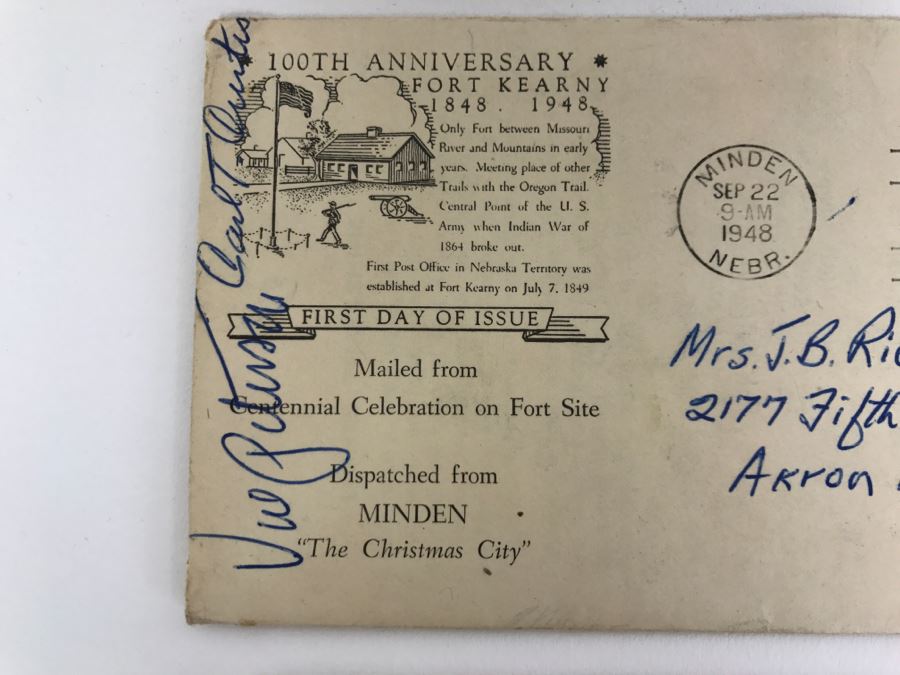 * 100TH ANNIVERSARY *
FORT KEARNY
1848 . 1948
Only Fort between Missouri
River and Mountains in early
years. Meeting place of other
Trails with the Oregon Trail.
Central Point of the U. S.
Army when Indian War of
1864 broke out.
First Post Office in Nebraska Territory was
established at Fort Kearny on July 7, 1849
FIRST DAY OF ISSUE
Mailed from
Centennial Celebration on Fort Site
Dispatched from
MINDEN
"The Christmas City"
Carl T Curtis
Val Peterson
MINDEN
SEP 22
9-AM
1948
NEBR.
Mrs. J. B.
2177 Fifth
Akron